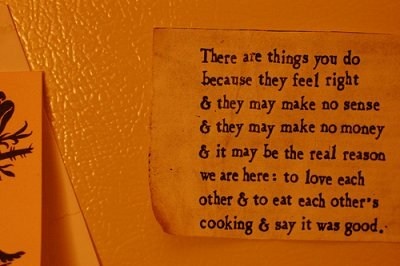 There are things you do
because they feel right
& they may make no sense
& they may make no money
& it may be the real reason
we are here: to love each
other & to eat each other's
cooking & say it was good.